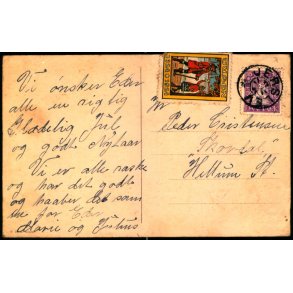 Vi ønsker Eder
alle en rigtig
Glædelig Jul
og godt Nytaar
Vi er alle raske
og har det godt
og haaber det sam
me for Eder
Marie og Julius
Peder Cristensen
"Hellum St.
JERS